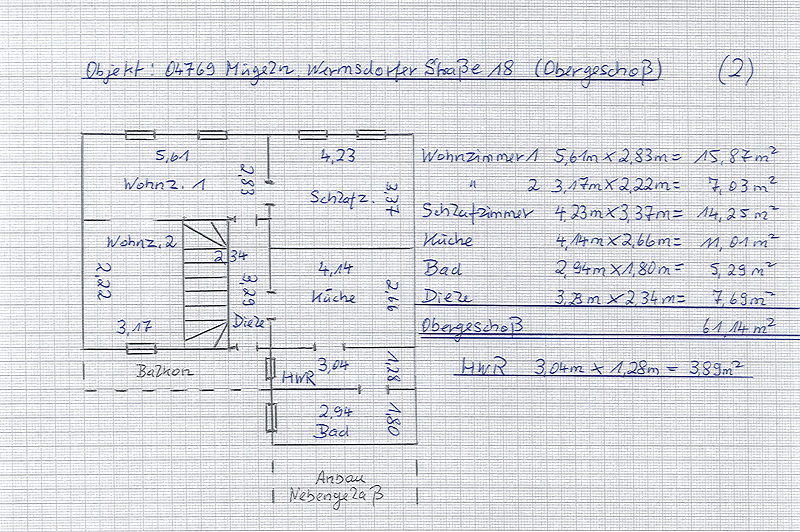 Objekt: 04769 Mügeln, Wermsdorfer Straße 18 (Obergeschoß) (2)
5,61
Wohnz. 1
2,83
4,23
Schlafz.
3,37
Wohnz. 2
2,22
3,17
2,34
3,29
Diele
4,14
Küche
2,66
Balkon
HWR
3,04
1,28
2,94
Bad
1,80
Anbau
Nebengelaß
Wohnzimmer 1 5,61m x 2,83m = 15,87m²
" 2 3,17m x 2,22m = 7,03m²
Schlafzimmer 4,23m x 3,37m = 14,25m²
Küche 4,14m x 2,66m = 11,01m²
Bad 2,94m x 1,80m = 5,29m²
Diele 3,29m x 2,34m = 7,69m²
Obergeschoß 61,14m²
HWR 3,04m x 1,28m = 3,89m²